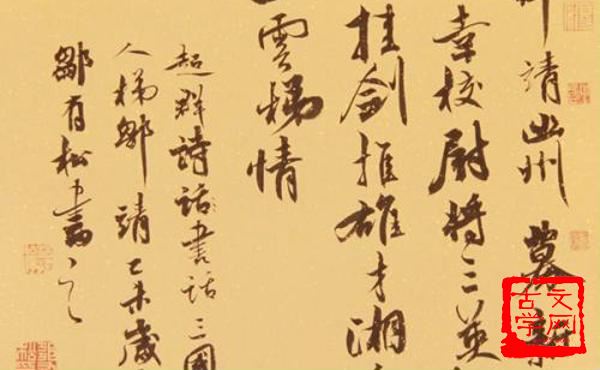 請幽州 募新
幸校尉將三英
挂劍推雄才湘
雲梯情
超群詩話書話三國
人梯鄒靖乙未歲
鄒有松書之
古文
学网